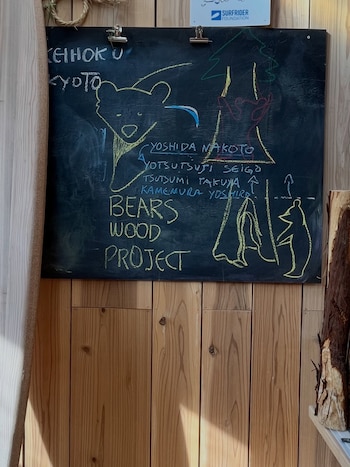 SURFRIDER
FOUNDATION
KEIHOKU
KYOTO
YOSHIDA MAKOTO
YOTSUTSUJI SEIGO
TSUTSUMI TAKUYA
KAMEMURA YOSHIRO
BEARS
WOOD
PROJECT